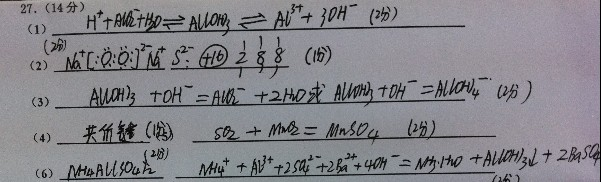 27. (14分)
(1) H⁺+AlO₂⁻+H₂O⇌Al(OH)₃⇌Al³⁺+3OH⁻ (2分)
(2分)
(2) Na⁺[:Ö:Ö:]²⁻Na⁺ S²⁻: (+16) 2 8 8 (1分)
(3) Al(OH)₃ +OH⁻=AlO₂⁻+2H₂O或 Al(OH)₃+OH⁻=Al(OH)₄⁻ (2分)
(4) 共价键 (1分) SO₂+MnO₂=MnSO₄ (2分)
(6) NH₄Al(SO₄)₂ (2分) NH₄⁺+Al³⁺+2SO₄²⁻+2Ba²⁺+4OH⁻=NH₃·H₂O+Al(OH)₃↓+2BaSO₄
(2分)